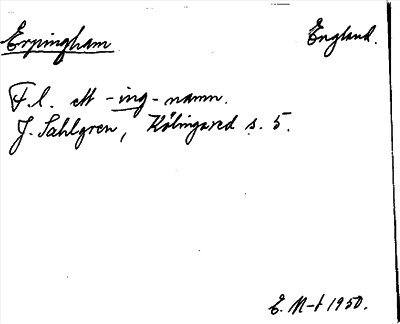 Erpingham England.
F.l. ett -ing- namn.
J. Sahlgren, Kölingared s. 5.
E. M-t 1950.